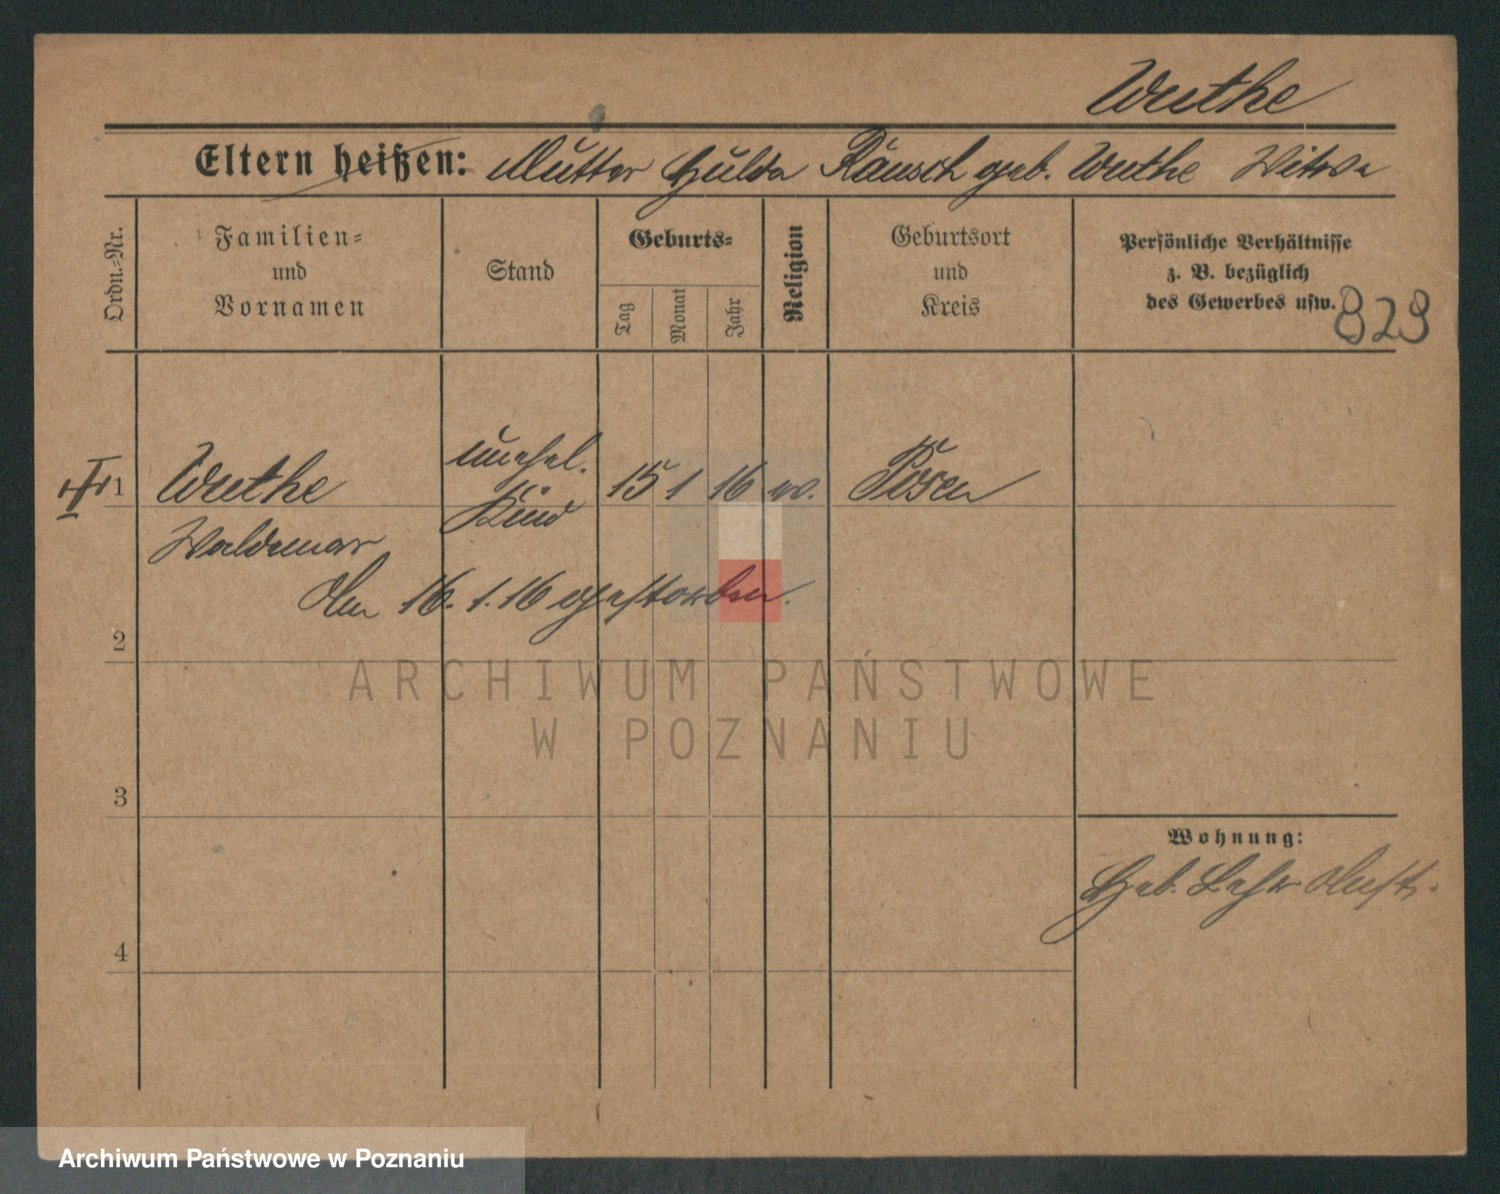 Wuthe
Eltern heißen: Mutter Hulda Räusch geb. Wuthe Witwe
Ordn.-Nr.
Familien-
und
Vornamen
Stand
Geburts-
Tag
Monat
Jahr
Religion
Geburtsort
und
Kreis
Persönliche Verhältnisse
z. B. bezüglich
des Gewerbes usw.
823
1
Wuthe
Waldemar
unehel.
Kind
15 1 16
Posen
Am 16.1.16 gestorben.
2
ARCHIWUM PAŃSTWOWE
W POZNANIU
3
Wohnung:
Heb. Lehr Anst.
4
Archiwum Państwowe w Poznaniu